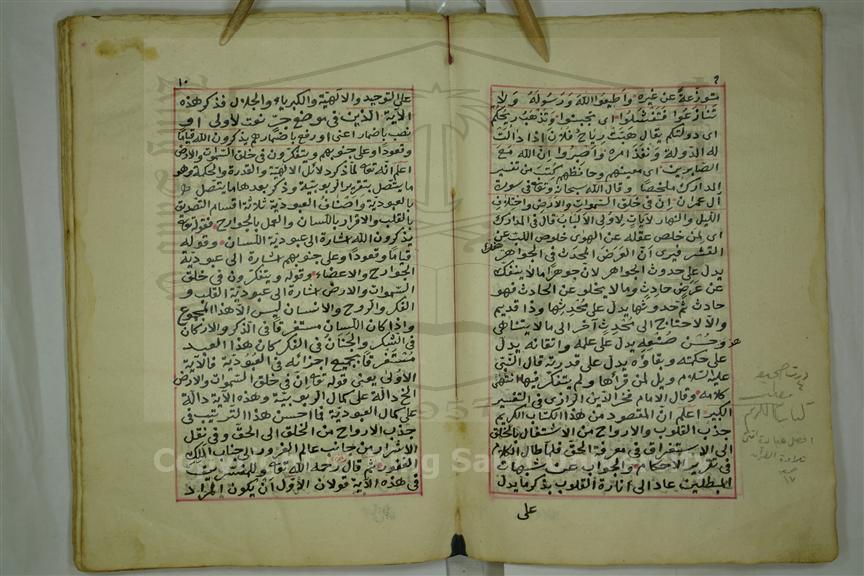 ٩
متوزعة عن غيره واطيعوا الله ورسوله ولا
تنازعوا فتفشلوا اى تجبنوا وتذهب ريحكم
اى دولتكم يقال هبت رياح فلان اذا دالت
له الدولة ونفذ امره واصبروا ان الله مع
الصابرين اى معينهم وحافظهم كنت من تفسير
المدارك ملخصا وقال الله سبحانه وتع فى سورة
آل عمران ان فى خلق السموات والارض واختلاف
الليل والنهار لآيات لاولى الالباب قال فى المدارك
اى لمن خلص عقله عن الهوى خلوص اللب عن
القشر فيرى ان العرض المحدث فى الجواهر
يدل على حدوث الجواهر لان جوهرا ما لا ينفك
عن عرض حادث وما لا يخلو عن الحادث فهو
حادث ثم حدوثها يدل على محدثها وذا قديم
والا لاحتاج الى محدث آخر الى ما لا يتناهى
وحسن صنعه يدل على علمه واتقانه يدل
على حكمته وبقاؤه يدل على قدرته قال النبى
عليه السلام ويل لمن قرأها ولم يتفكر فيها انتهى
كلامه وقال الامام فخر الدين الرازى فى التفسير
الكبير اعلم ان المقصود من هذا الكتاب الكريم
جذب القلوب والارواح من الاشتغال بالخلق
الى الاستغراق فى معرفة الحق فلما طال الكلام
فى تقرير الاحكام والجواب عن شبهات
المبطلين عاد الى انارة القلوب بذكر ما يدل
على
افضل عبادة امتى
تلاوة القرآن
١٧
١٠
على التوحيد والالهية والكبرياء والجلال فذكر هذه
الآية الذين فى موضع جر نعت لاولى او
نصب باضمار اعنى او رفع باضمار هم يذكرون الله قياما
وقعودا وعلى جنوبهم ويتفكرون فى خلق السموات والارض
اعلم انه تع لما ذكر دلائل الالهية والقدرة والحكمة وهو
ما يتصل بتقرير الربوبية وذكر بعدها ما يتصل
بالعبودية واصناف العبودية ثلاثة اقسام التصديق
بالقلب والاقرار باللسان والعمل بالجوارح فقوله تع
يذكرون الله اشارة الى عبودية اللسان وقوله
قياما وقعودا وعلى جنوبهم اشارة الى عبودية
الجوارح والاعضاء وقوله ويتفكرون فى خلق
السموات والارض اشارة الى عبودية القلب و
الفكر والروح والانسان ليس الا هذا المجموع
واذا كان اللسان مستغرقا فى الذكر والاركان
فى الشكر والجنان فى الفكر كان هذا العبد
مستغرقا بجميع اجزائه فى العبودية فالآية
الاولى يعنى قوله تع ان فى خلق السموات والارض
الخ دالة على كمال الربوبية وهذه الآية دالة
على كمال العبودية فما احسن هذا الترتيب فى
جذب الارواح من الخلق الى الحق وفى نقل
الاسرار من جانب عالم الغرور الى جناب الملك
الغفور ثم قال رحمه الله تع وللمفسرين
فى هذه الآية قولان الاول ان يكون المراد